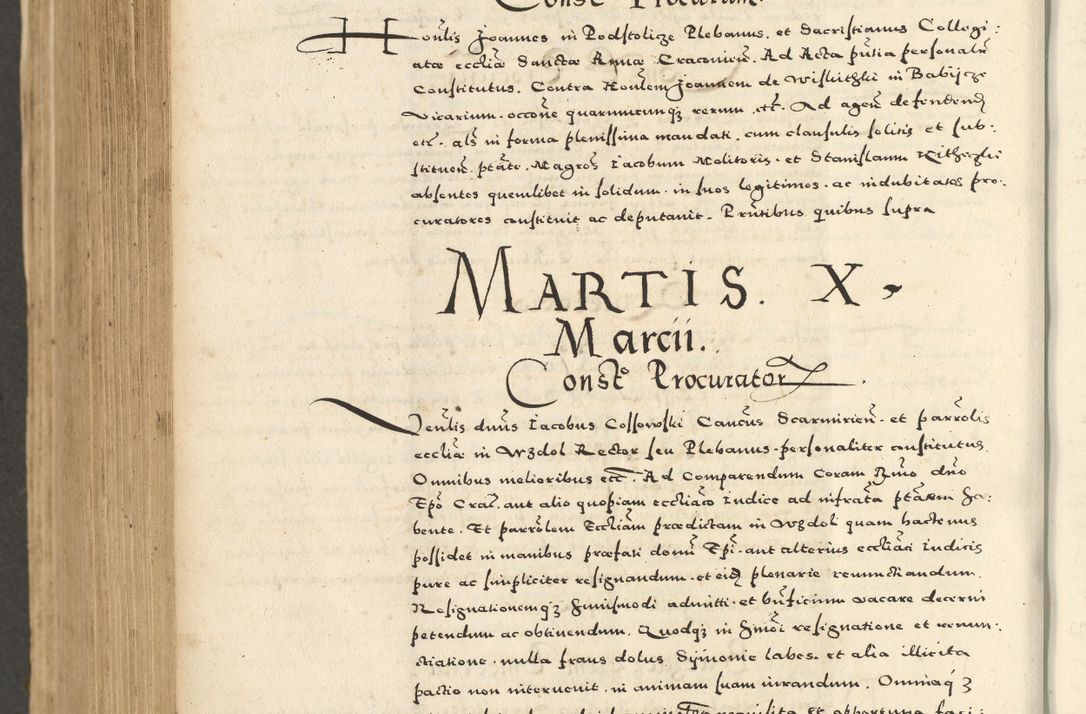 Const Procurator.
Honlis Joannes in Podstolicze Plebanus. et Sacristianus Collegi:
atæ eccliæ Sanctæ Annæ Cracovien. Ad Acta pntia personalr
Constitutus. Contra Honlem Joannem de Wislithzki in Babijcze
Vicarium. occone quarumcunqz rerum etc. Ad agen defendend
etc. als in forma plenissima mandati. cum clausulis solitis et sub:
stituen. ptate. Magros Iacobum Molitoris. et Stanislaum
absentes quemlibet in solidum. in suos legitimos. ac indubitatos pro:
curatores constituit ac deputauit. Prntibus quibus supra
MARTIS. X.
Marcii.
Consto Procurator.
Venlis dnus Iacobus Cossowski Cancus Scarmirien. et parrolis
eccliæ in Wzdol Rector seu Plebanus. personaliter constitutus.
Omnibus melioribus etc. Ad Comparendum Coram Rmo dno
Epo Crac. aut alio quopiam eccliaco Iudice ad infrata ptatem ha:
bente. Et parrolem Eccliam prædictam in Wzdol quam hactenus
possidet in manibus præfati domni Epi. aut alterius eccliaci Iudicis
pure ac simpliciter resignandum. et eid plenarie renunctiandum.
Resignationemqz huiusmodi admitti. et bnficium vacare decerni
petendum ac obtinendum. Quodqz in hmoi resignatione et renun:
ctiatione. nulla fraus dolus Sijmonie labes. et alia illicita
pactio non interuenit. in animam suam iurandum. Omniaq z
requisita et opportuna faci: